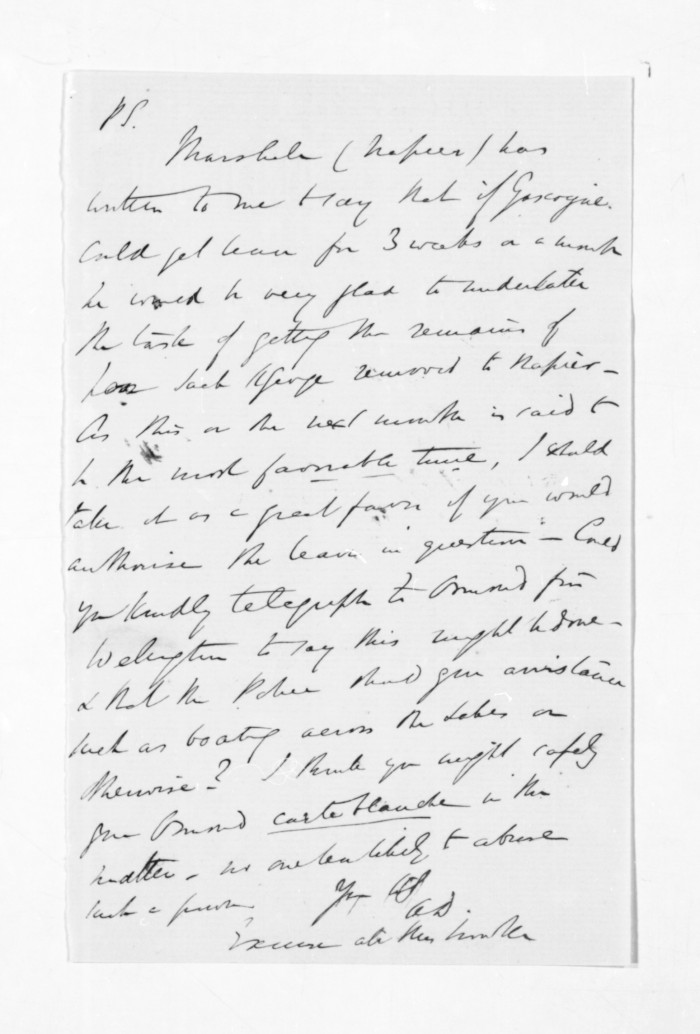 PS.
Marshall (Napier) has
written to me to say that if Gascoyne
could get leave for 3 weeks or a month
he would be very glad to undertake
the task of getting the remains of
Jack & George removed to Napier –
As this or the next month is said to
be the most favourable time, I should
take it as a great favor if you would
authorise the leave in question – Could
you kindly telegraph to Ormond from
Wellington to say this might be done –
& that the Police should give assistance
such as boating across the Lakes or
otherwise? I think you might safely
give Ormond carte blanche in this
matter – no one less likely to abuse
such a power. Yrs
Excuse all this trouble